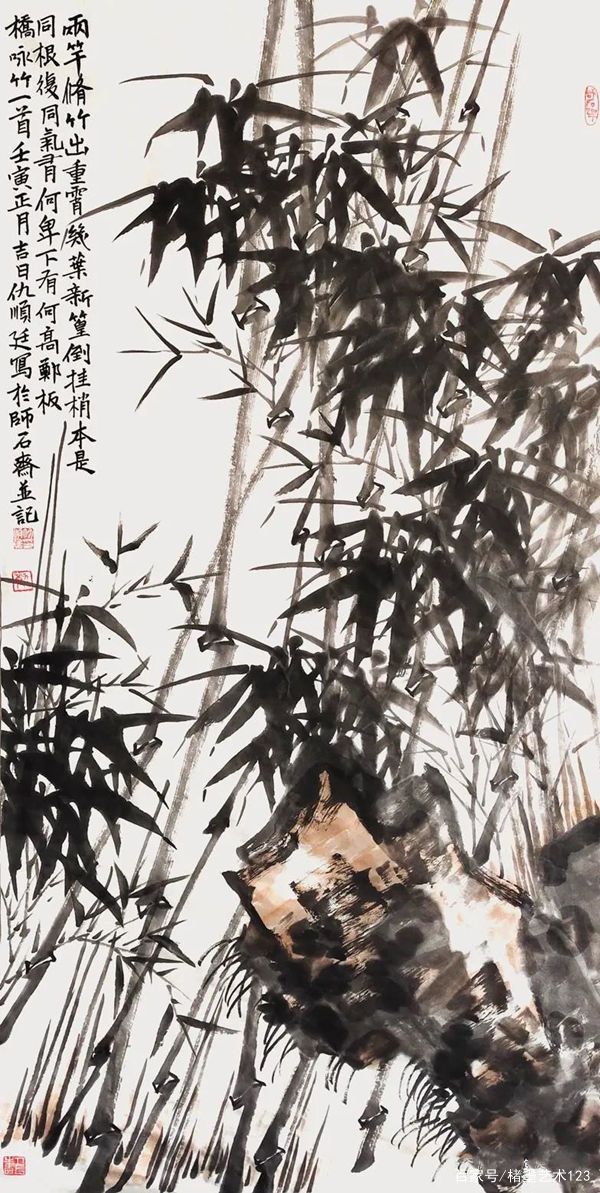 兩竿脩竹出重霄幾葉新篁倒挂梢本是
同根復同氣有何卑下有何高鄭板
橋咏竹一首壬寅正月吉日仇順廷寫於師石齋並記
百家号/楮墨艺术123